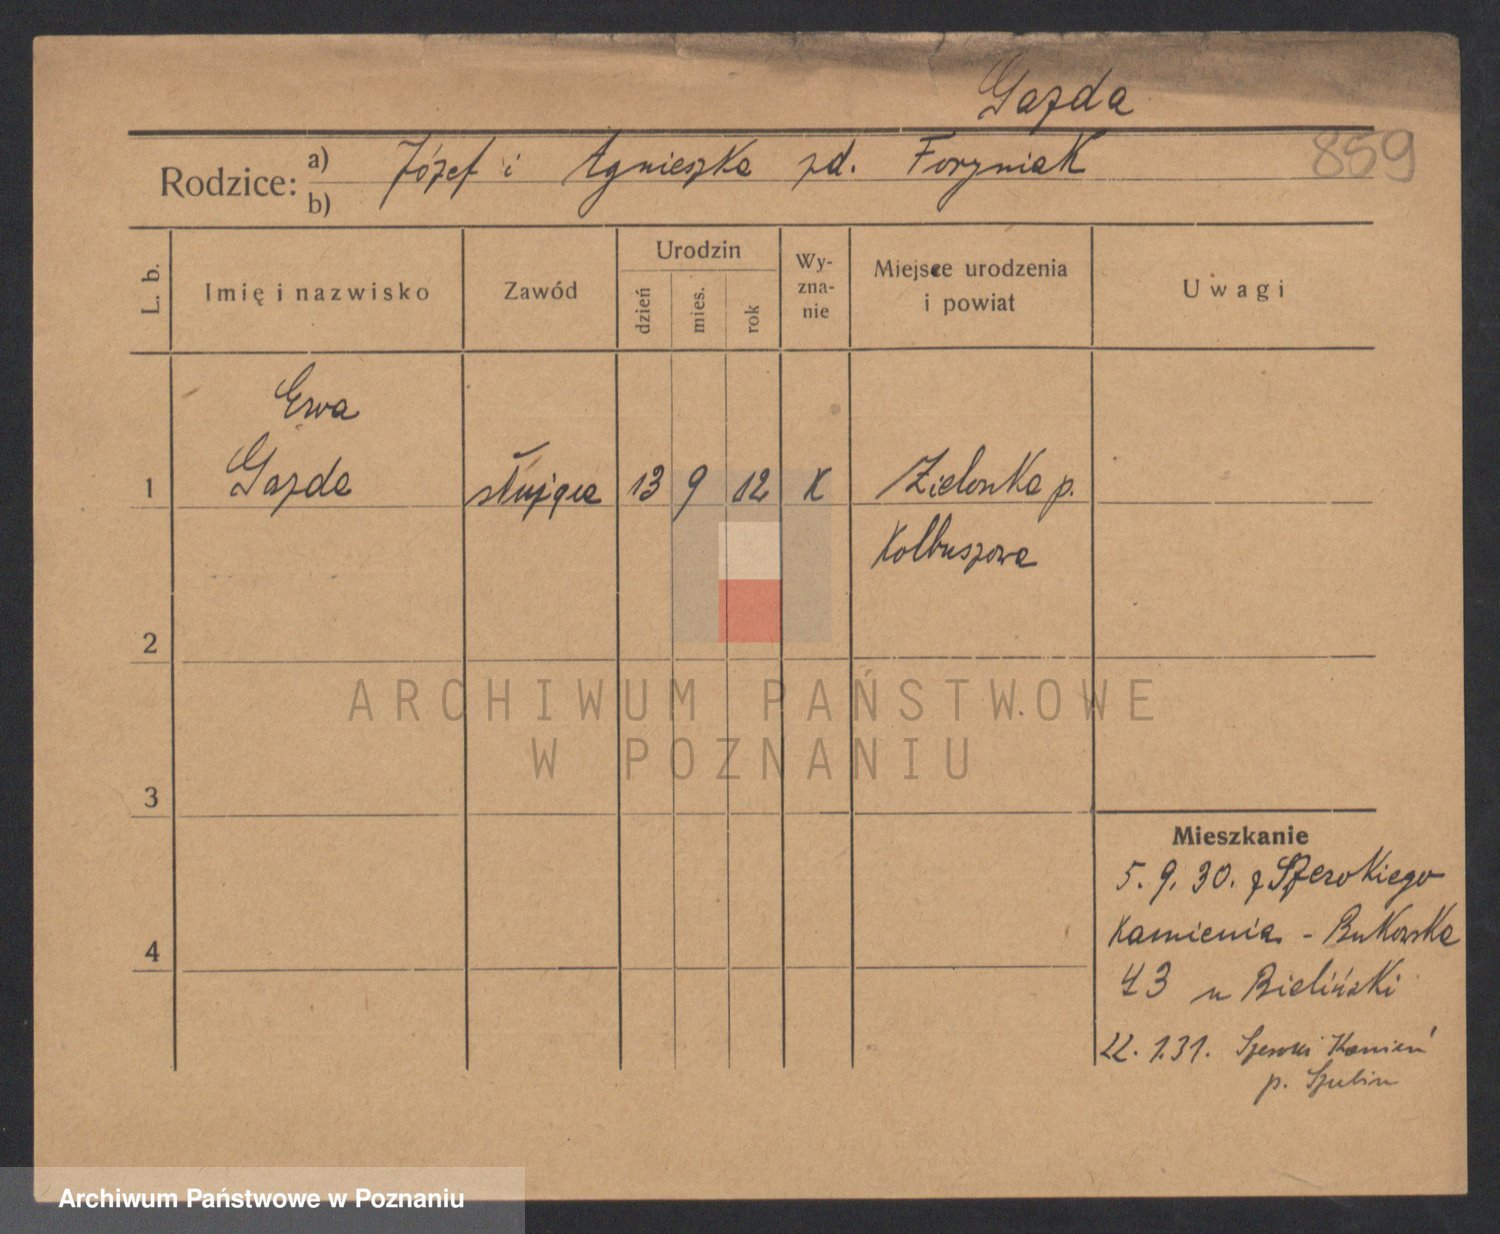 Gazda
859
Rodzice: a) Józef i Agnieszka zd. Foryniak
b)
L. b.
Imię i nazwisko
Zawód
Urodzin
dzień
mies.
rok
Wy-
zna-
nie
Miejsce urodzenia
i powiat
Uwagi
Ewa
1 Gazda służąca 13 9 12 K Zielonka p.
Kolbuszowa
2
ARCHIWUM PAŃSTWOWE
W POZNANIU
3
Mieszkanie
5. 9. 30. z Szerokiego
Kamienia - Bukowska
43 u Bieliński
4
22. 1.31. Szeroki Kamień
p. Szubin
Archiwum Państwowe w Poznaniu